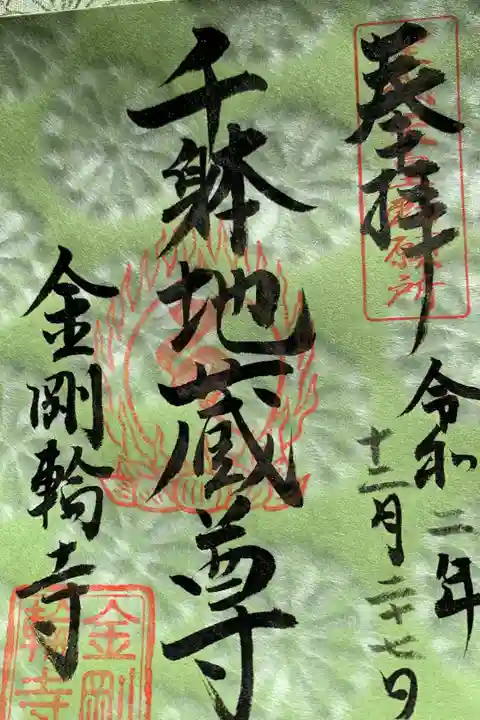 奉拝
令和二年
十二月二十七日
千躰地蔵尊
金剛輪寺
金剛
輪寺